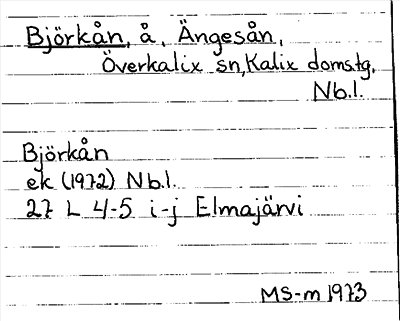 Björkån, å, Ängesån,
Överkalix sn, Kalix domstg,
Nb.l.
Björkån
ek (1972) Nb.l.
27 L 4-5 i-j Elmajärvi
MS-m 1973